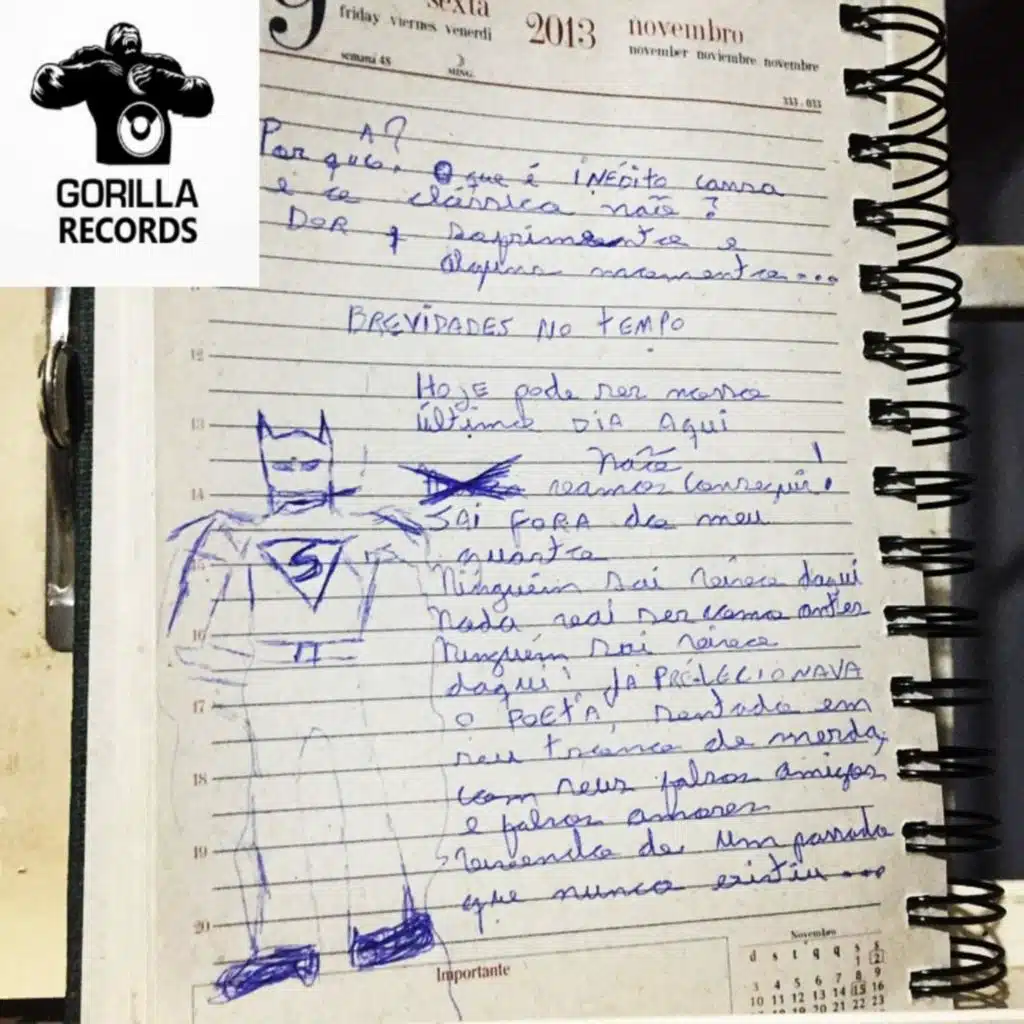 GORILLA
RECORDS
9 sexta
friday viernes venerdì
2013 novembro
november noviembre novembre
semana 48
MING.
333 . 033
A?
Por que, O que é INÉDITO cansa
e o clássico não?
DOR + sofrimento e
alguns momentos...
BREVIDADES NO TEMPO
12
Hoje pode ser nosso
13
último DIA AQUI
Não
14
vamos conseguir!
SAI FORA do meu
15
quarto
Ninguém sai vivo daqui
Nada vai ser como antes
16
Ninguém sai vivo
daqui! JÁ PRELECIONAVA
17
O POETA, sentado em
seu trono de merda,
18
com seus falsos amigos
e falsos amores
19
vivendo de um passado
que nunca existiu...
20
S
Importante
Novembro
d s t q q s s
1 2
3 4 5 6 7 8 9
10 11 12 13 14 15 16
17 18 19 20 21 22 23